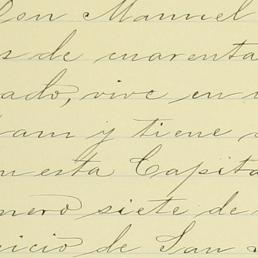 Don Manuel
s de cuarenta
ado, vive en
am y tiene
n esta Capita
mero siete de
icio de San